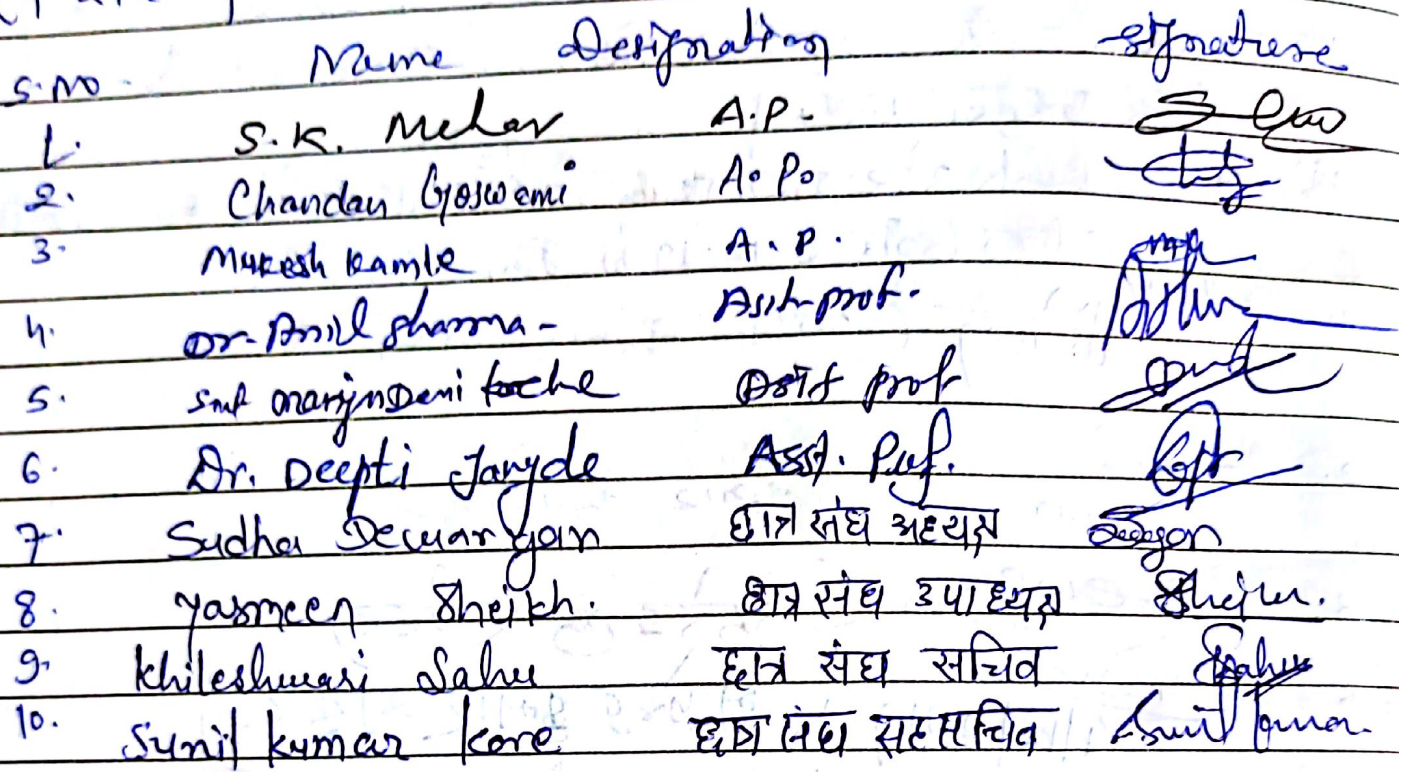 S.NO Name Designation Signature
1. S.K. Meher A.P.
2. Chandan Goswami A.P.
3. Mukesh Kamle A.P.
4. Dr. Anil Sharma - Asst. prof.
5. Smt Devi prof
6. Dr. Deepti Jangde Asst. Prof.
7. Sudha Dewangan छात्र संघ अध्यक्ष
8. Yasmeen Sheikh. छात्र संघ उपाध्यक्ष
9. Khileshwari Sahu छात्र संघ सचिव Sahu
10. Sunil kumar kore छात्र संघ सहसचिव